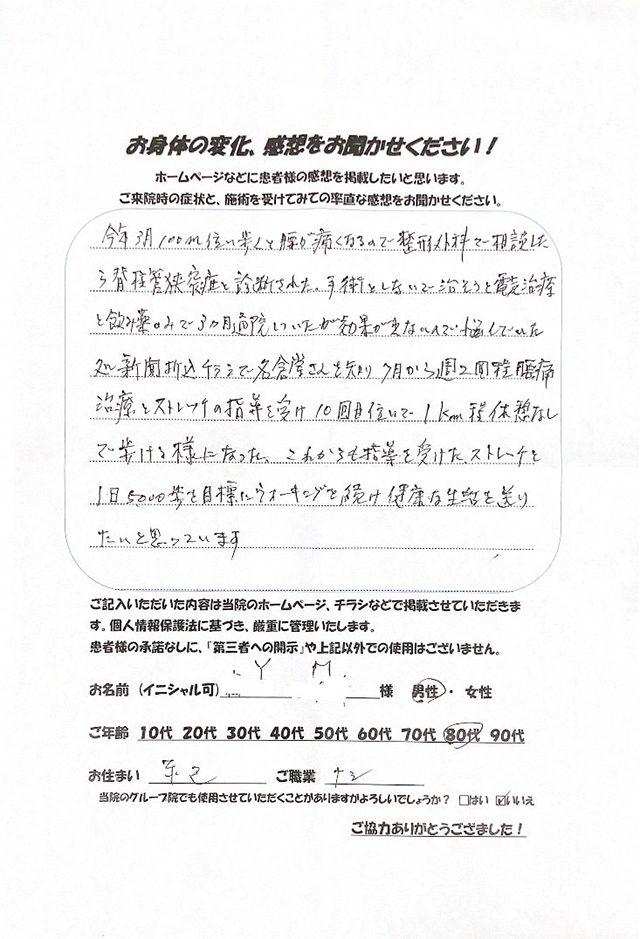 お身体の変化、感想をお聞かせください！
ホームページなどに患者様の感想を掲載したいと思います。
ご来院時の症状と、施術を受けてみての率直な感想をお聞かせください。
今年3月100m位い歩くと腰が痛くなるので整形外科で相談した
ら脊柱管狭窄症と診断された。手術をしないで治そうと電気治療
と飲み薬のみで3ヶ月通院していたが効果が出ないので悩んでいた
処新聞折込チラシで名倉堂さんを知り7月から週2回程腰痛
治療とストレッチの指導を受け10回目位いで1km程休憩なし
で歩ける様になった、これからも指導を受けた、ストレッチと
1日5000歩を目標にウォーキングを続け健康な生活を送り
たいと思っています
ご記入いただいた内容は当院のホームページ、チラシなどで掲載させていただきま
す。個人情報保護法に基づき、厳重に管理いたします。
患者様の承諾なしに、「第三者への開示」や上記以外での使用はございません。
お名前（イニシャル可） Y M 様 男性・女性
ご年齢 10代 20代 30代 40代 50代 60代 70代 80代 90代
お住まい ご職業 ナシ
当院のグループ院でも使用させていただくことがありますがよろしいでしょうか？ □はい ☑いいえ
ご協力ありがとうござました！